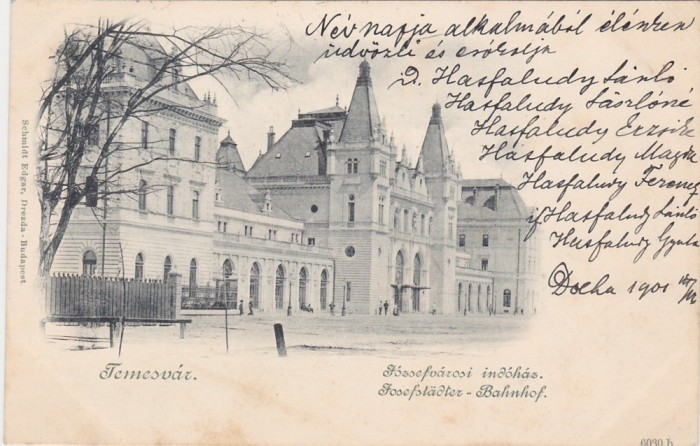 Név napja alkalmából élénken
üdvözli és
D. Hasfaludy
Hasfaludy Lászlóné
Hasfaludy Erzsike
Hasfaludy
Hasfaludy Ferencz
ifj Hasfaludy
Hasfaludy Gyula
1901
Schmidt Edgar, Drezda-Budapest
Temesvár.
Józsefvárosi indóház.
Josefstädter - Bahnhof.
6030 b